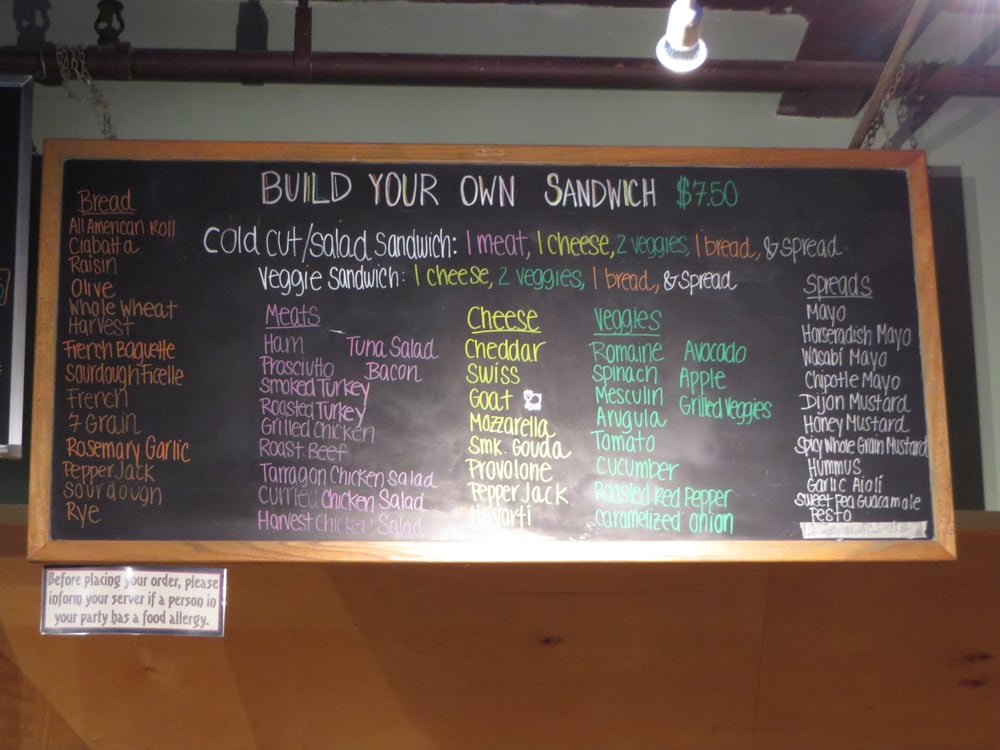 BUILD YOUR OWN SANDWICH $7.50
Cold cut/salad Sandwich: 1 meat, 1 cheese, 2 veggies, 1 bread, & spread
Veggie Sandwich: 1 cheese, 2 veggies, 1 bread, & spread
Bread
All American Roll
Ciabatta
Raisin
Olive
Whole Wheat
Harvest
French Baguette
Sourdough Ficelle
French
7 Grain
Rosemary Garlic
Pepper Jack
Sourdough
Rye
Meats
Ham
Prosciutto
Smoked Turkey
Roasted Turkey
Grilled Chicken
Roast Beef
Tarragon Chicken Salad
Curried Chicken Salad
Harvest Chicken Salad
Tuna Salad
Bacon
Cheese
Cheddar
Swiss
Goat
Mozzarella
Smk. Gouda
Provolone
Pepper Jack
Havarti
Veggies
Romaine
Spinach
Mesculin
Arugula
Tomato
Cucumber
Roasted Red Pepper
Caramelized onion
Avocado
Apple
Grilled Veggies
Spreads
Mayo
Horseradish Mayo
Wasabi Mayo
Chipotle Mayo
Dijon Mustard
Honey Mustard
Spicy Whole Grain Mustard
Hummus
Garlic Aioli
Sweet Pea Guacamole
Pesto
Before placing your order, please
inform your server if a person in
your party has a food allergy.